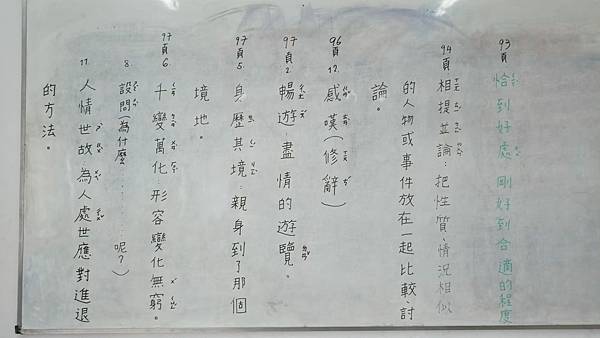 93頁 恰到好處 剛好到合適的程度
94頁 相提並論：把性質、情況相似
的人物或事件放在一起比較、討
論。
96頁 12. 感嘆（修辭）
97頁 2. 暢遊：盡情的遊覽。
97頁 5. 身歷其境：親身到了那個
境地。
97頁 6. 千變萬化 形容變化無窮。
8. 設問（為什麼………呢？）
11. 人情世故 為人處世應對進退
的方法。